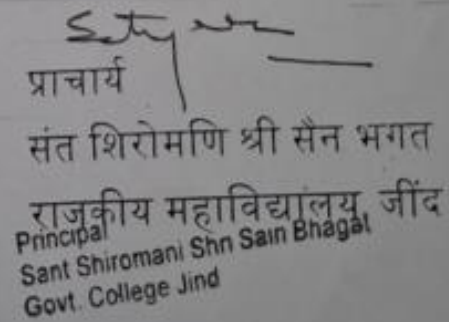 प्राचार्य
संत शिरोमणि श्री सैन भगत
राजकीय महाविद्यालय, जींद
Principal
Sant Shiromani Shri Sain Bhagat
Govt. College Jind